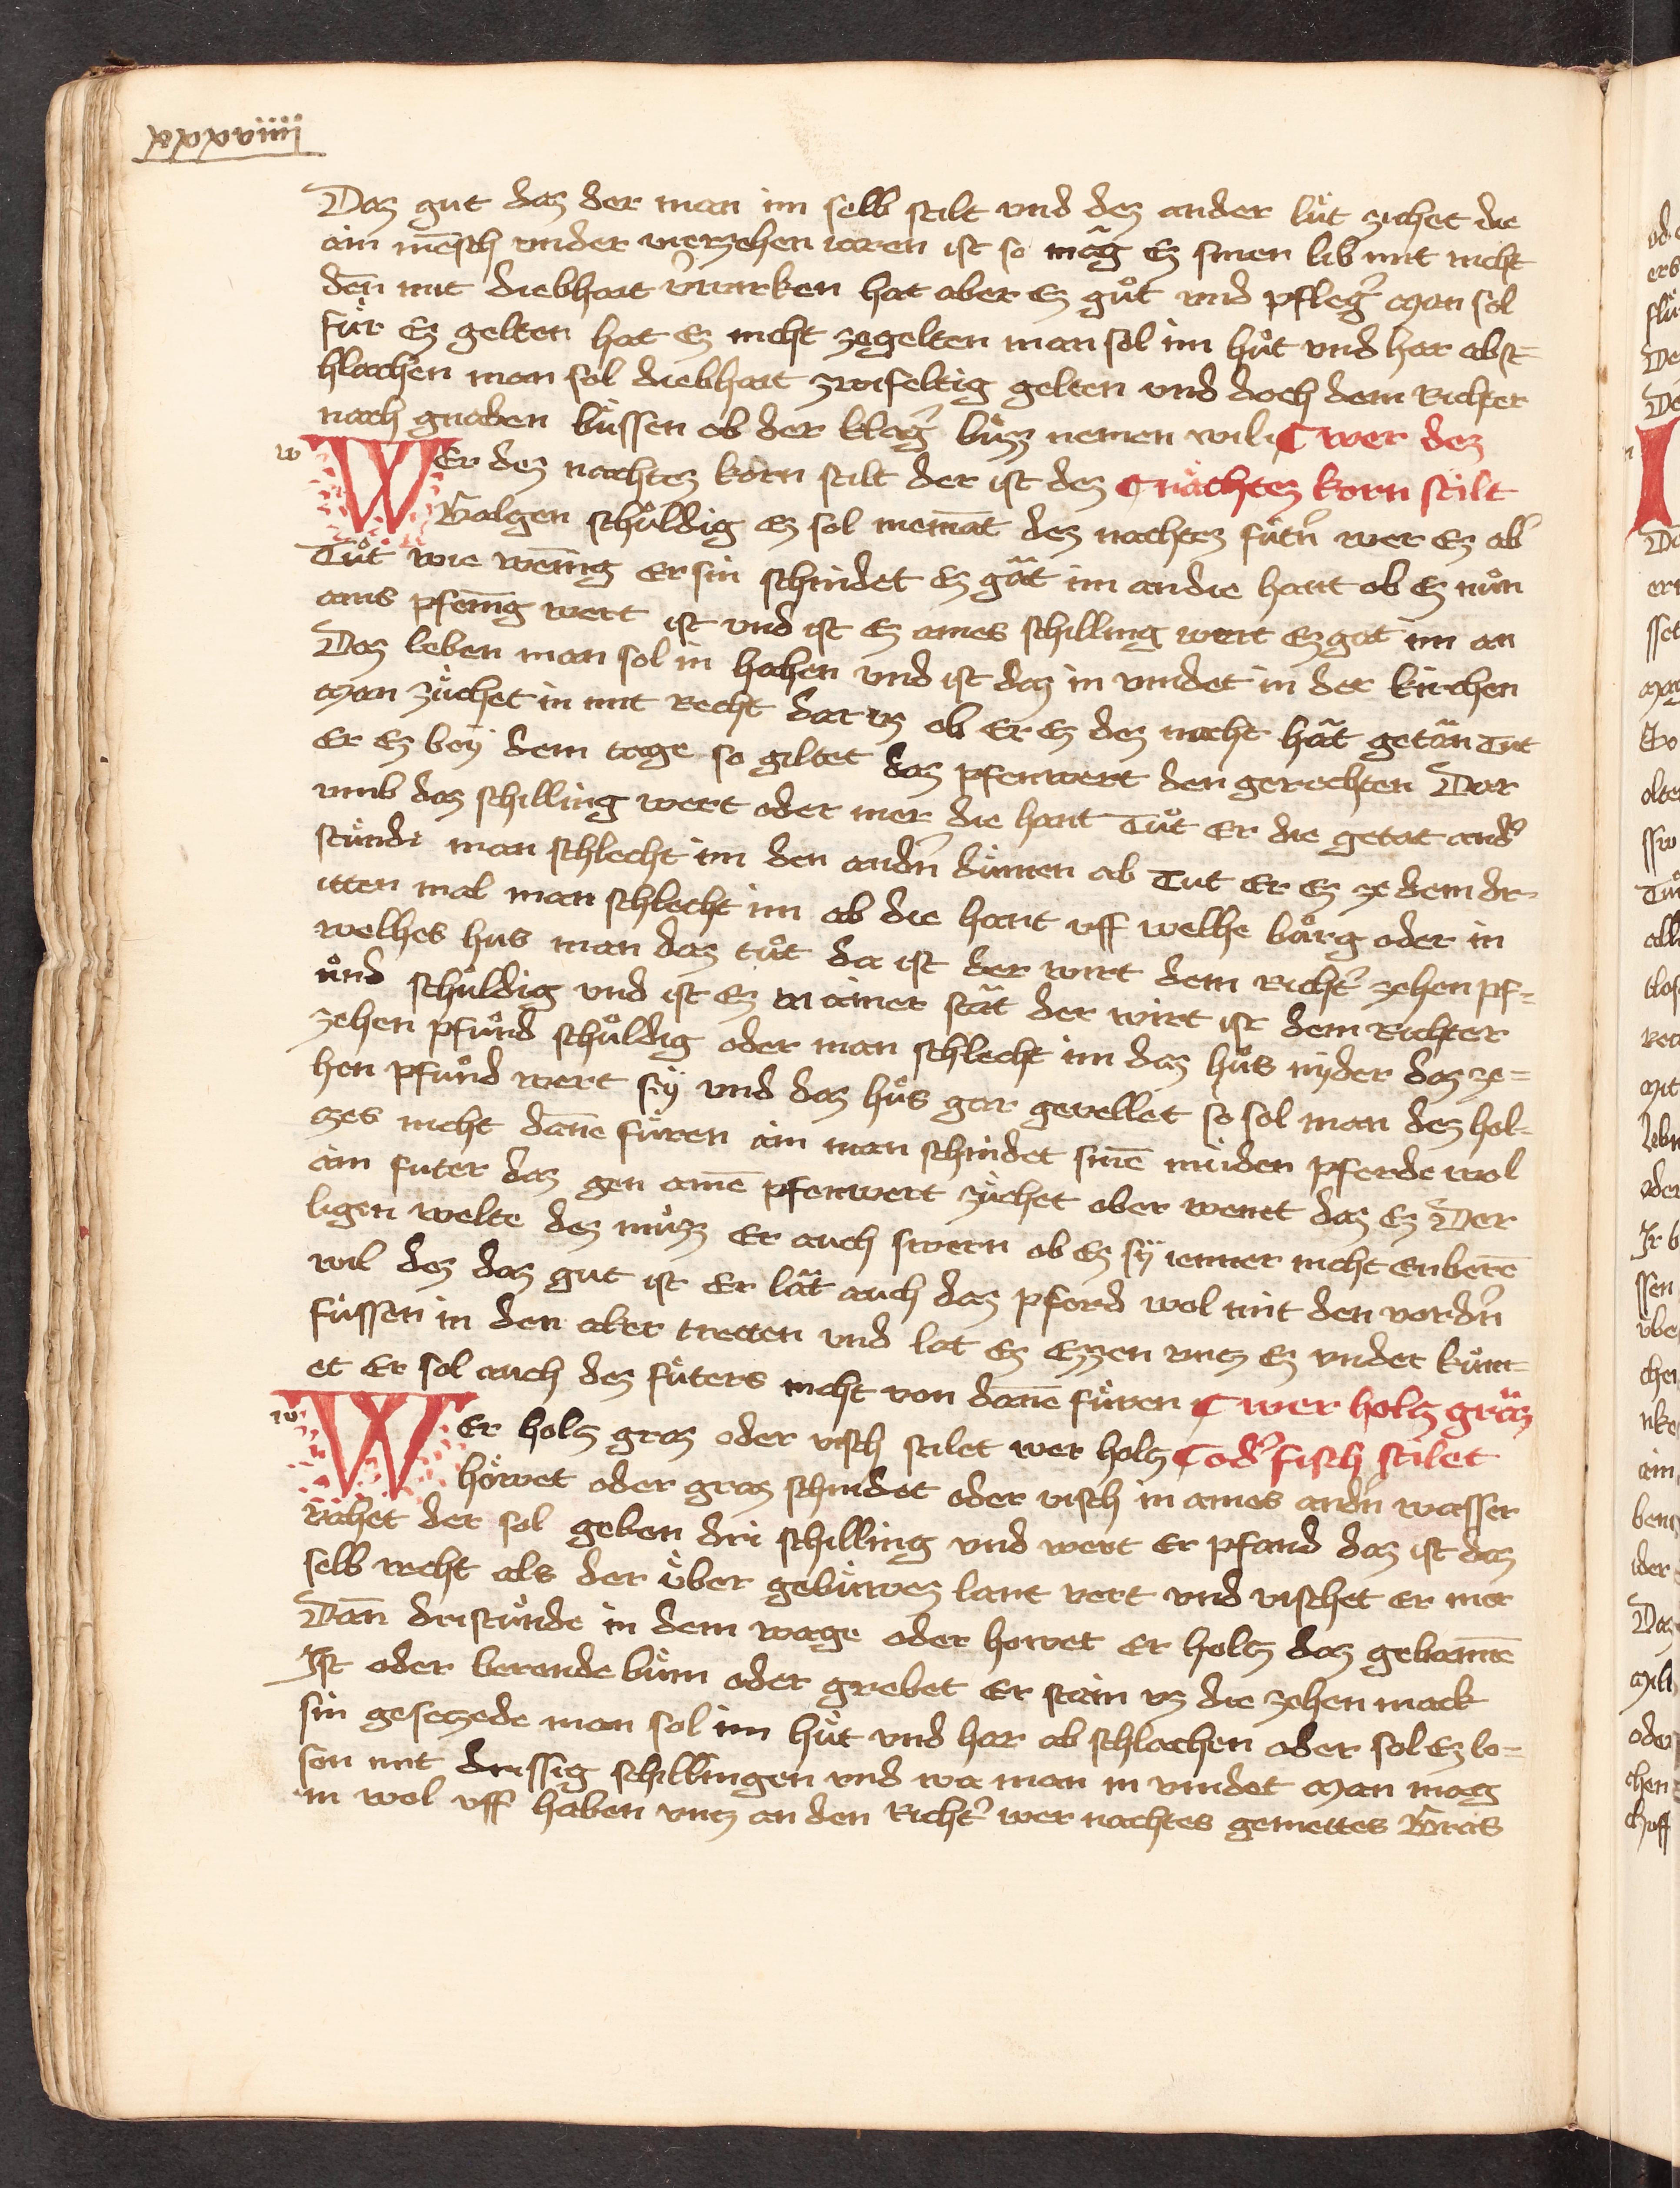 xxxviiii
Daz gut daz der man im selb stilt vnd dez ander lüt zichet die
ain mēsch vnder vierzehen iaren ist so māg Ez sinen lib mit nicht
deñ mit diebhait v̾wurken hat aber ez gůt vnd pfleg̾ man sol
für Ez gelten hat Ez nicht zegelten man sol im hût vnd har absc=
hlachen man sol diebhait zwifeltig gelten vnd doch dem Richter
nach gnaden büssen ob der klag̾ bůzz nemen wil ¶ wer dez
w WEr dez nachtez korn stilt der ist dez ¶ nachtez korn stilt
Galgen schůldig ez sol niemāt dez nachtez fůtn̾ wer Ez ab̾
Tůt wie wēnig Er sin schindet Ez gãt im an die hant ob Ez nůn
ains pfēnig wert ist vnd ist Ez aines schilling wert Ez gat im an
Daz leben man sol in hahen vnd ist daz in vindet in der kirchen
man züchet in mit Recht dar vz ob Er Ez dez nacht hãt getãn Tut
Er Ez bey dem tage so giltet daz pfenwert den gerechten Dar
vmb daz schilling wert oder mer die hant Tůt Er die getat and̾
stůnde man schlecht im den andn̾ důmen ab Tut Er Ez ze dem dr=
itten mal man schlecht im ab die hant vff welhe bůrg oder in
welhes hus man daz tůt da ist der wirt dem Richt̾ zehen pf=
ůnd schůldig vnd ist Ez in ainer stãt der wirt ist dem Richter
zehen pfůnd schůldig oder man schlecht im daz hůs nyder daz ze=
hen pfůnd wert sÿ vnd daz hůs gar gevellet so sol man dez hol=
zes nicht dañe fůren ain man schindet sinē müden pferde wol
ain futer daz gen ainē pfenwert züchet aber wenet daz Ez Der
ligen welte dez můzz Er auch swern ob Ez sÿ ienner nicht enberē
wil dez daz gut ist Er lãt auch daz pferd wol mit den vordn̾
füssen in den aker tretten vnd lat Ez Ezzen vntz Ez vnder kům=
et Er sol auch dez fůters nicht von dañe fůren ¶ wer holtz grãz
w WEr holtz graz oder visch stilet wer holtz ¶ od̾ fisch stilet
höwet oder graz schindet oder visch in aines andn̾ wasser
vahet der sol geben dri schilling vnd wert Er pfand daz ist daz
selb recht als der über gebuwez lant vert vnd vischet Er mer
Dañ dristůnde in dem wage oder howet Er holtz daz gebannē
Ist oder berende bům oder grebet Er stain vz die zehen mark
sin gesetzede man sol im hůt vnd har ab schlachen oder sol Ez lo=
sen mit drissig schillingen vnd wa man in vindet man mag
in wol vff haben vntz an den Richt̾ wer nachtes gemettes Gras